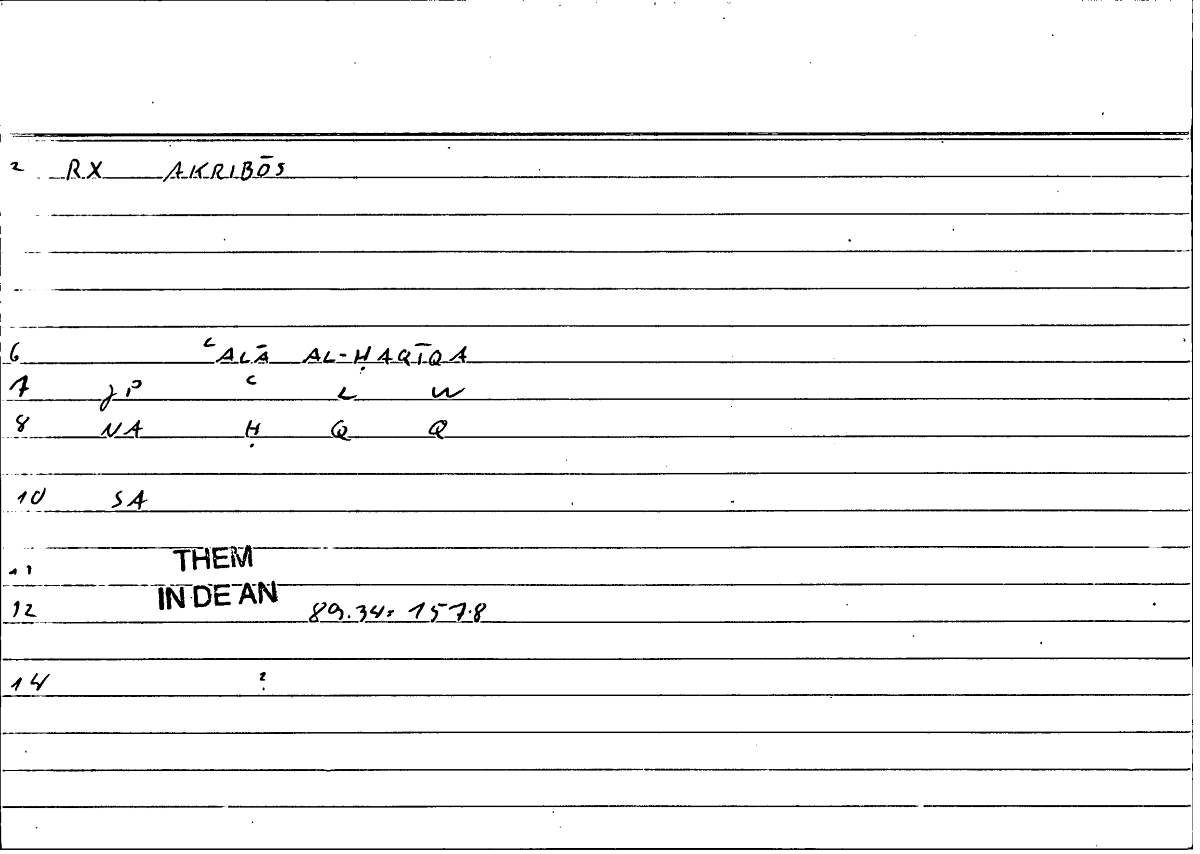 2 RX AKRIBŌS
6 ʿALĀ AL-ḤAQĪQA
7 JP ʿ L W
8 NA Ḥ Q Q
10 SA
11 THEM
12 IN DE AN 89.34= 157.8
14 2